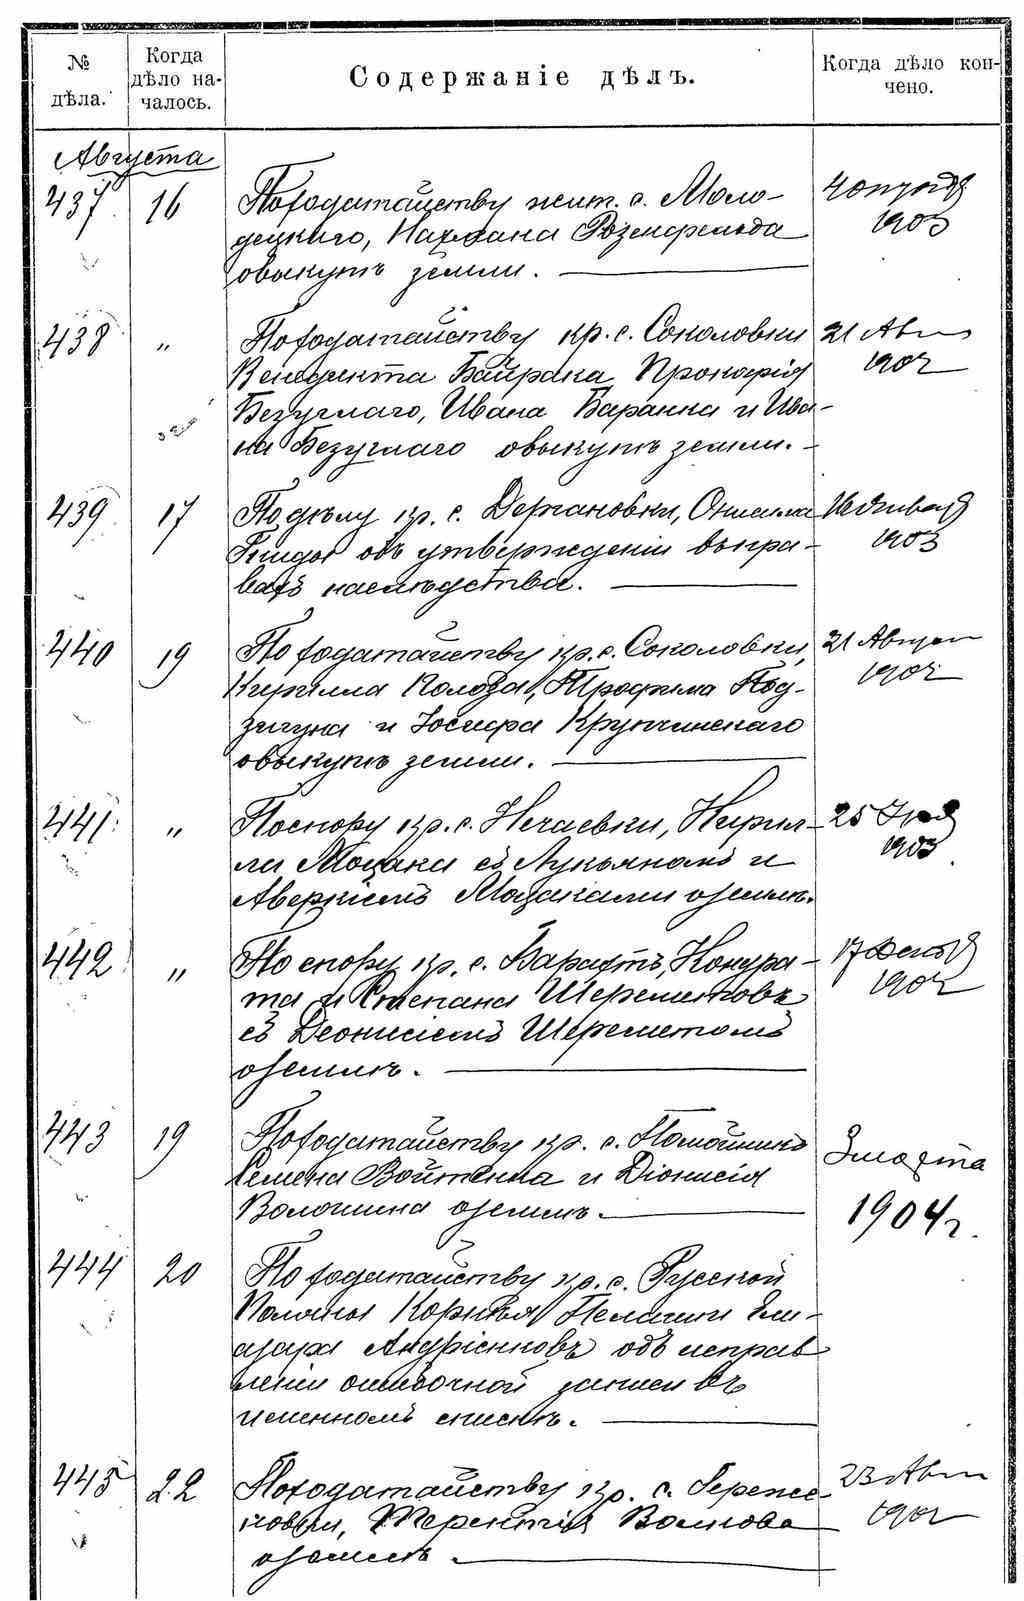 № дѣла.
Когда дѣло на-
чалось.
Содержаніе дѣлъ.
Когда дѣло кон-
чено.
Августа
437 16 По ходатайству жит. с. Моло-
децкаго, Нахмана Розенфельда
о выкупѣ земли.
1903
438 „ По ходатайству кр. с. Соколовки
Венедикта Байрака, Прокофія
Безуглаго, Ивана Баранка и Ива-
на Безуглаго о выкупѣ земли.
21 Авг
1902
439 17 По дѣлу кр. с. Держановки, Онисима
объ утвержденіи въ пра-
вахъ наслѣдства.
16 Января
1903
440 19 По ходатайству кр. с. Соколовки,
Кирилла Колода, Трофима Под-
и Іосифа Крупчинскаго
о выкупѣ земли.
21 Август
1902
441 „ По спору кр. с. Нечаевки, Кирил-
ла Моцака съ Лукьяномъ и
Аверкіемъ Моцаками о землѣ.
25
1903
442 „ По спору кр. с. Кондра-
та и Степана Шереметовъ
съ Деонисіемъ Шереметомъ
о землѣ.
17
1902
443 19 По ходатайству кр. с. Помойникъ
Семена Войтенка и Діонисія
Волошина о землѣ.
3 марта
1904 г.
444 20 По ходатайству кр. с. Русской
Поляны Корнѣя, Пелагии Ели-
азара Андріенковъ объ исправ
леніи ошибочной записи въ
именномъ спискѣ.
445 22 По ходатайству кр. с. Череже-
Терентія Волкова
о землѣ.
23 Авг
1902